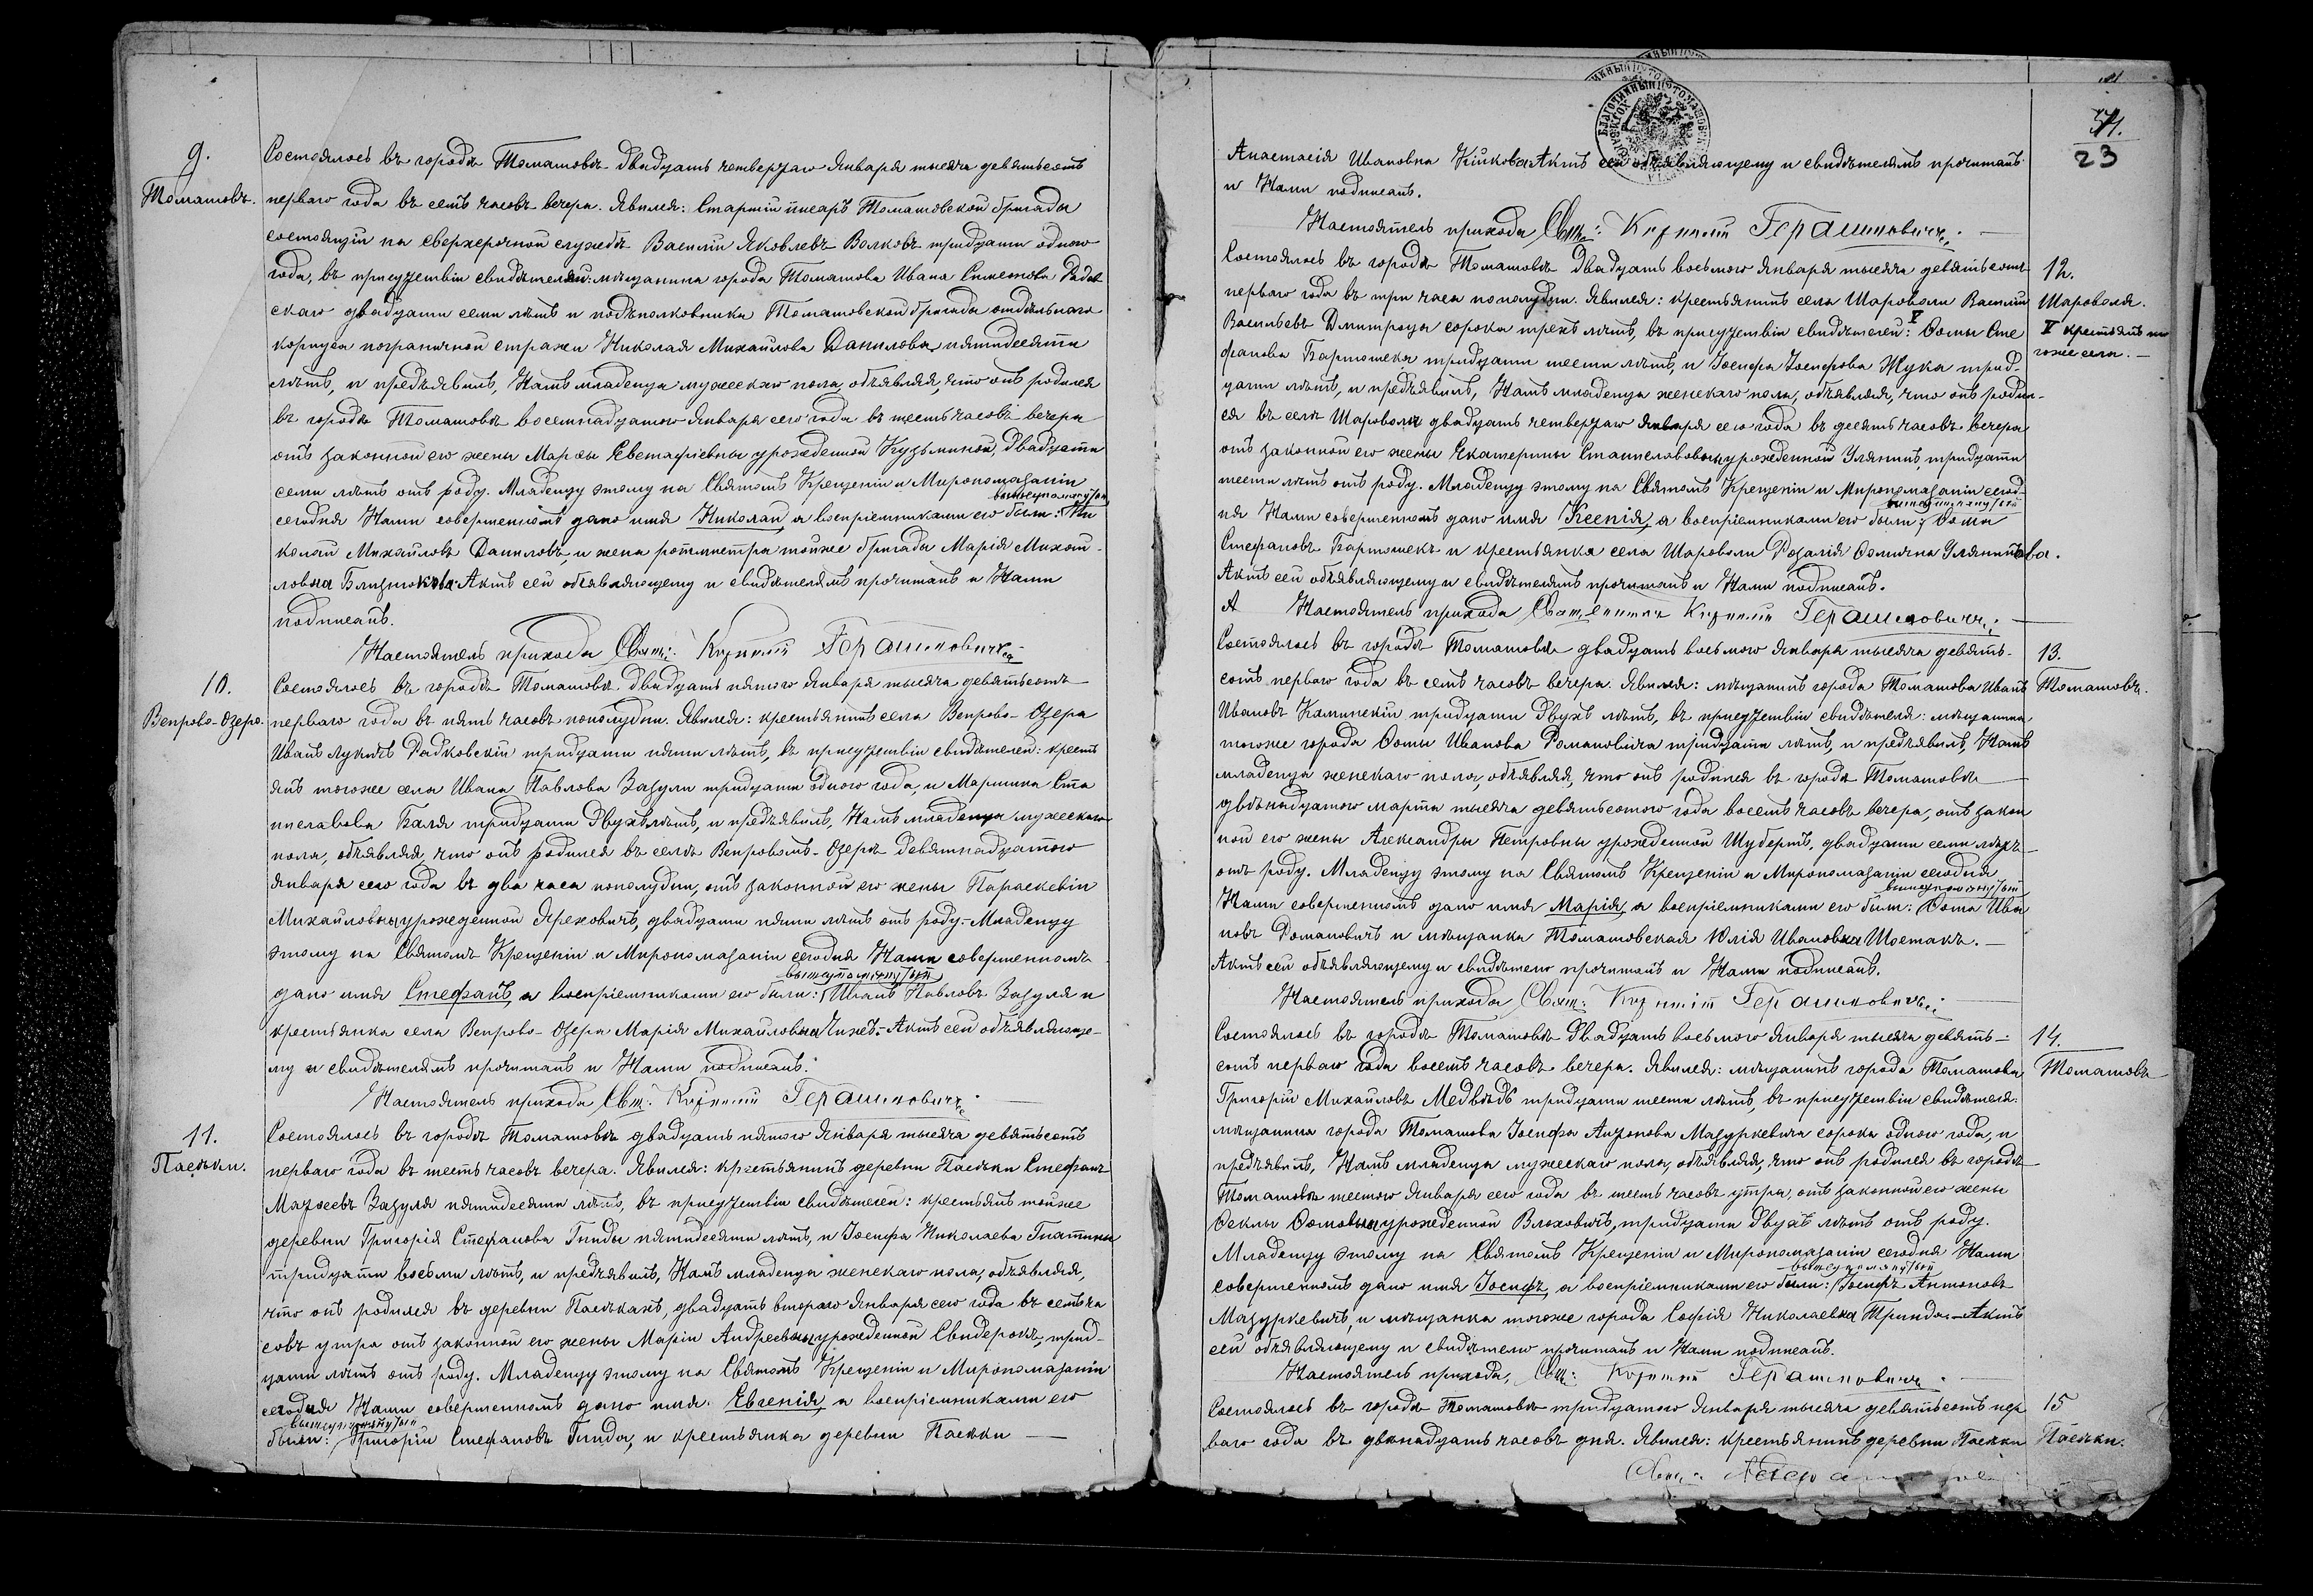 9.
Томашовъ.
Состоялось въ городѣ Томашовѣ двадцать четвертаго Января тысяча девятьсотъ
перваго года въ семь часовъ вечера. Явился: Старшій писарь Томашовской бригады
состоящій на сверхсрочной службѣ Василій Яковлевъ Волковъ тридцати одного
года, въ присутствіи свидѣтелей: мѣщанина города Томашова Ивана Симеонова Радов
скаго двадцати семи лѣтъ и подполковника Томашовской бригады отдѣльнаго
корпуса пограничной стражи Николая Михайлова Данилова, пятидесяти
лѣтъ, и предъявилъ, Намъ младенца мужескаго пола, объявляя, что онъ родился
въ городѣ Томашовѣ восемнадцатаго Января сего года въ шесть часовъ вечера
отъ законной его жены Марѳы Евстафіевны урожденной Кузьминой, двадцати
семи лѣтъ отъ роду. Младенцу этому на Святомъ Крещеніи и Миропомазаніи
вышеупомянутый
сегодня Нами совершенномъ дано имя Николай, а воспріемниками его были: Ни
колай Михайловъ Даниловъ, и жена ротмистра тойже бригады Марія Михай-
ловна Актъ сей объявляющему и свидѣтелямъ прочитанъ и Нами
подписанъ.
Настоятель прихода Свящ: Корнилій Герашиновичъ
10.
Венрово-Озеро.
Состоялось въ городѣ Томашовѣ двадцать пятого Января тысяча девятьсотъ
перваго года въ пять часовъ пополудни. Явился: крестьянинъ села Венрово-Озера
Иванъ Лукинъ Радковскій тридцати пяти лѣтъ, въ присутствіи свидѣтелей: крест
янъ тогоже села Ивана Павлова Зазули тридцати одного года, и Мартина Ста
ниславова Баля тридцати двухъ лѣтъ, и предъявилъ, Намъ младенца мужескаго
пола, объявляя, что онъ родился въ селѣ Венровомъ-Озерѣ девятнадцатого
Января сего года въ два часа пополудни, отъ законной его жены Параскевіи
Михайловны урожденной Яреховичъ, двадцати пяти лѣтъ отъ роду. Младенцу
этому на Святомъ Крещеніи и Миропомазаніи сегодня Нами совершенномъ
вышеупомянутый
дано имя Стефанъ, а воспріемниками его были: Иванъ Павловъ Зазуля и
крестьянка села Венрово-Озера Марія Михайловна Чижъ.- Актъ сей объявляюще-
му и свидѣтелямъ прочитанъ и Нами подписанъ.
Настоятель прихода Свщ: Корнилій Герашиновичъ
11.
Пасѣки.
Состоялось въ городѣ Томашовѣ двадцать пятого Января тысяча девятьсотъ
перваго года въ шесть часовъ вечера. Явился: крестьянинъ деревни Пасѣки Стефанъ
Матѳеевъ Зазуля пятидесяти лѣтъ, въ присутствіи свидѣтелей: крестьянъ тойже
деревни Григорія Стефанова Гинды пятидесяти лѣтъ, и Іосифа Николаева Гнатины
тридцати восьми лѣтъ, и предъявилъ, Намъ младенца женскаго пола, объявляя,
что онъ родился въ деревни Пасѣкахъ, двадцать втораго Января сего года въ семь ча
совъ утра отъ законной его жены Маріи Андреевны урожденной Свидерокъ, трид-
цати лѣтъ отъ роду. Младенцу этому на Святомъ Крещеніи и Миропомазаніи
сегодня Нами совершенномъ дано имя Евгенія, а воспріемниками его
вышеупомянутый
были: Григорій Стефановъ Гинда, и крестьянка деревни Пасѣки
54.
23
Анастасія Ивановна Актъ сей объявляющему и свидѣтелямъ прочитанъ
и Нами подписанъ.
Настоятель прихода Свящ: Корнилій Герашиновичъ.
12.
Шароволя.
V крестьянъ то
гоже села.
Состоялось въ городѣ Томашовѣ двадцать восьмого Января тысяча девятьсотъ
перваго года въ три часа пополудни. Явился: крестьянинъ села Шароволи Василій
Васильевъ Дмитроца сорока трехъ лѣтъ, въ присутствіи свидѣтелей: V Ѳомы Сте
фанова Бартошека тридцати шести лѣтъ, и Іосифа Іосифова Жука трид-
цати лѣтъ, и предъявилъ, Намъ младенца женскаго пола, объявляя, что онъ родил-
ся въ селѣ Шароволи двадцать четвертаго Января сего года въ десять часовъ вечера
отъ законной его жены Екатерины Станиславовны урожденной Улянинъ тридцати
шести лѣтъ отъ роду. Младенцу этому на Святомъ Крещеніи и Миропомазаніи сегод-
вышеупомянутый
ня Нами совершенномъ дано имя Ксенія, а воспріемниками его были: Ѳома
Стефановъ Бартошекъ и крестьянка села Шароволи Розалія Ѳомична Улянинова.
Актъ сей объявляющему и свидѣтелямъ прочитанъ и Нами подписанъ.
Настоятель прихода Священникъ Корнилій Герашиновичъ.
13.
Томашовъ.
Состоялось въ городѣ Томашовѣ двадцать восьмого Января тысяча девять-
сотъ перваго года въ семь часовъ вечера. Явился: мѣщанинъ города Томашова Иванъ
Ивановъ Каминскій тридцати двухъ лѣтъ, въ присутствіи свидѣтеля: мѣщанина
тогоже города Ѳомы Иванова Романовича тридцати лѣтъ, и предъявилъ, Намъ
младенца женскаго пола, объявляя, что онъ родился въ городѣ Томашовѣ
двѣнадцатого Марта тысяча девятьсотого года восемь часовъ вечера, отъ закон
ной его жены Александры Петровны урожденной Шубертъ, двадцати семи лѣтъ
отъ роду. Младенцу этому на Святомъ Крещеніи и Миропомазаніи сегодня
вышеупомянутый
Нами совершенномъ дано имя Марія, а воспріемниками его были: Ѳома Ива
новъ Романовичъ и мѣщанка Томашовская Юлія Ивановна Шостакъ.
Актъ сей объявляющему и свидѣтелю прочитанъ и Нами подписанъ.
Настоятель прихода Свящ: Корнилій Герашиновичъ.
14.
Томашовъ
Состоялось въ городѣ Томашовѣ двадцать восьмого Января тысяча девять-
сотъ перваго года восемь часовъ вечера. Явился: мѣщанинъ города Томашова
Григорій Михайловъ Медвѣдь тридцати шести лѣтъ, въ присутствіи свидѣтеля:
мѣщанина города Томашова Іосифа Антонова Мазуркевича сорока одного года, и
предъявилъ, Намъ младенца мужескаго пола, объявляя, что онъ родился въ городѣ
Томашовѣ шестого Января сего года въ шесть часовъ утра, отъ законной его жены
Ѳеклы Ѳомовны урожденной Влоховичъ, тридцати двухъ лѣтъ отъ роду.
Младенцу этому на Святомъ Крещеніи и Миропомазаніи сегодня Нами
вышеупомянутый
совершенномъ дано имя Іосифъ, а воспріемниками его были: Іосифъ Антоновъ
Мазуркевичъ, и мѣщанка тогоже города Софія Николаевна Тринда.- Актъ
сей объявляющему и свидѣтелю прочитанъ и Нами подписанъ.
Настоятель прихода, Свщ: Корнилій Герашиновичъ.
15
Пасѣки.
Состоялось въ городѣ Томашовѣ тридцатого Января тысяча девятьсотъ пер
ваго года въ двѣнадцать часовъ дня. Явился: крестьянинъ деревни Пасѣки